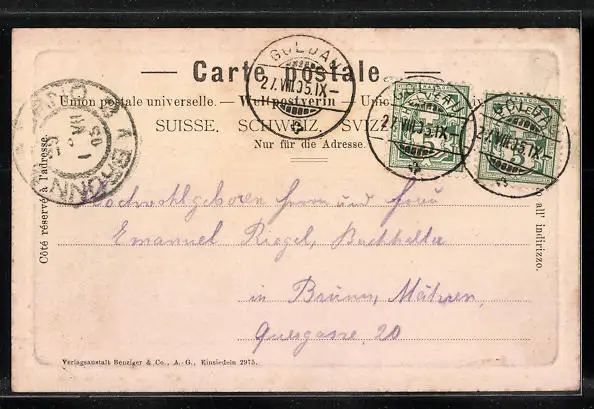 GOLDAU
27.VIII.05.IX-
— Carte postale —
Union postale universelle. — Weltpostverein — Unione postale universale
SUISSE. SCHWEIZ. SVIZZERA.
Nur für die Adresse.
GOLDAU
27.VIII.05.IX-
5
GOLDAU
27.VIII.05.IX-
5
BRÜNN
BRNO
VIII
05
Côté réservé à l'adresse.
all' indirizzo.
Hochwohlgeboren Herrn und Frau
Emanuel Riegel, Buchhalter
in Brünn, Mähren,
Quergasse 20
Verlagsanstalt Benziger & Co., A.-G., Einsiedeln 2975.